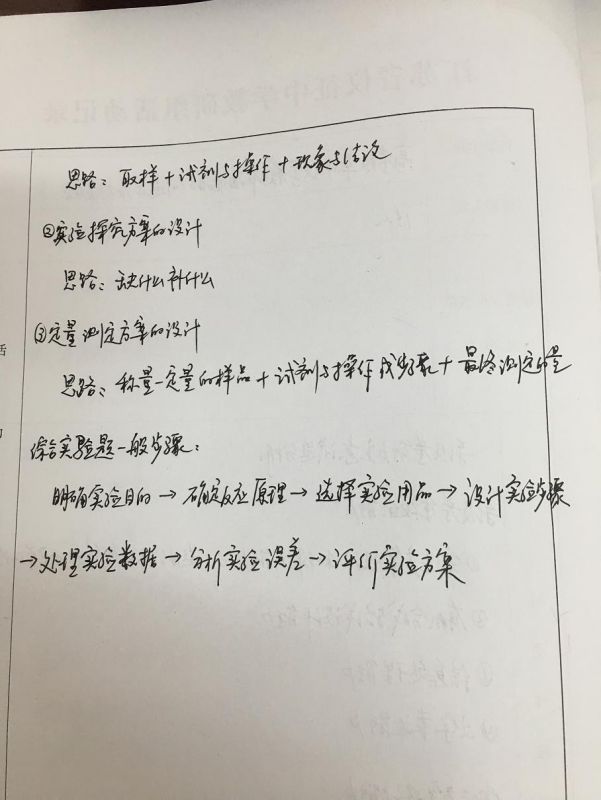 思路：取样+试剂与操作+现象与结论
②实验探究方案的设计
思路：缺什么补什么
③定量测定方案的设计
思路：称量一定量的样品+试剂与操作或步骤+最终测定的量
综合实验题一般步骤：
明确实验目的→确定反应原理→选择实验用品→设计实验步骤
→处理实验数据→分析实验误差→评价实验方案